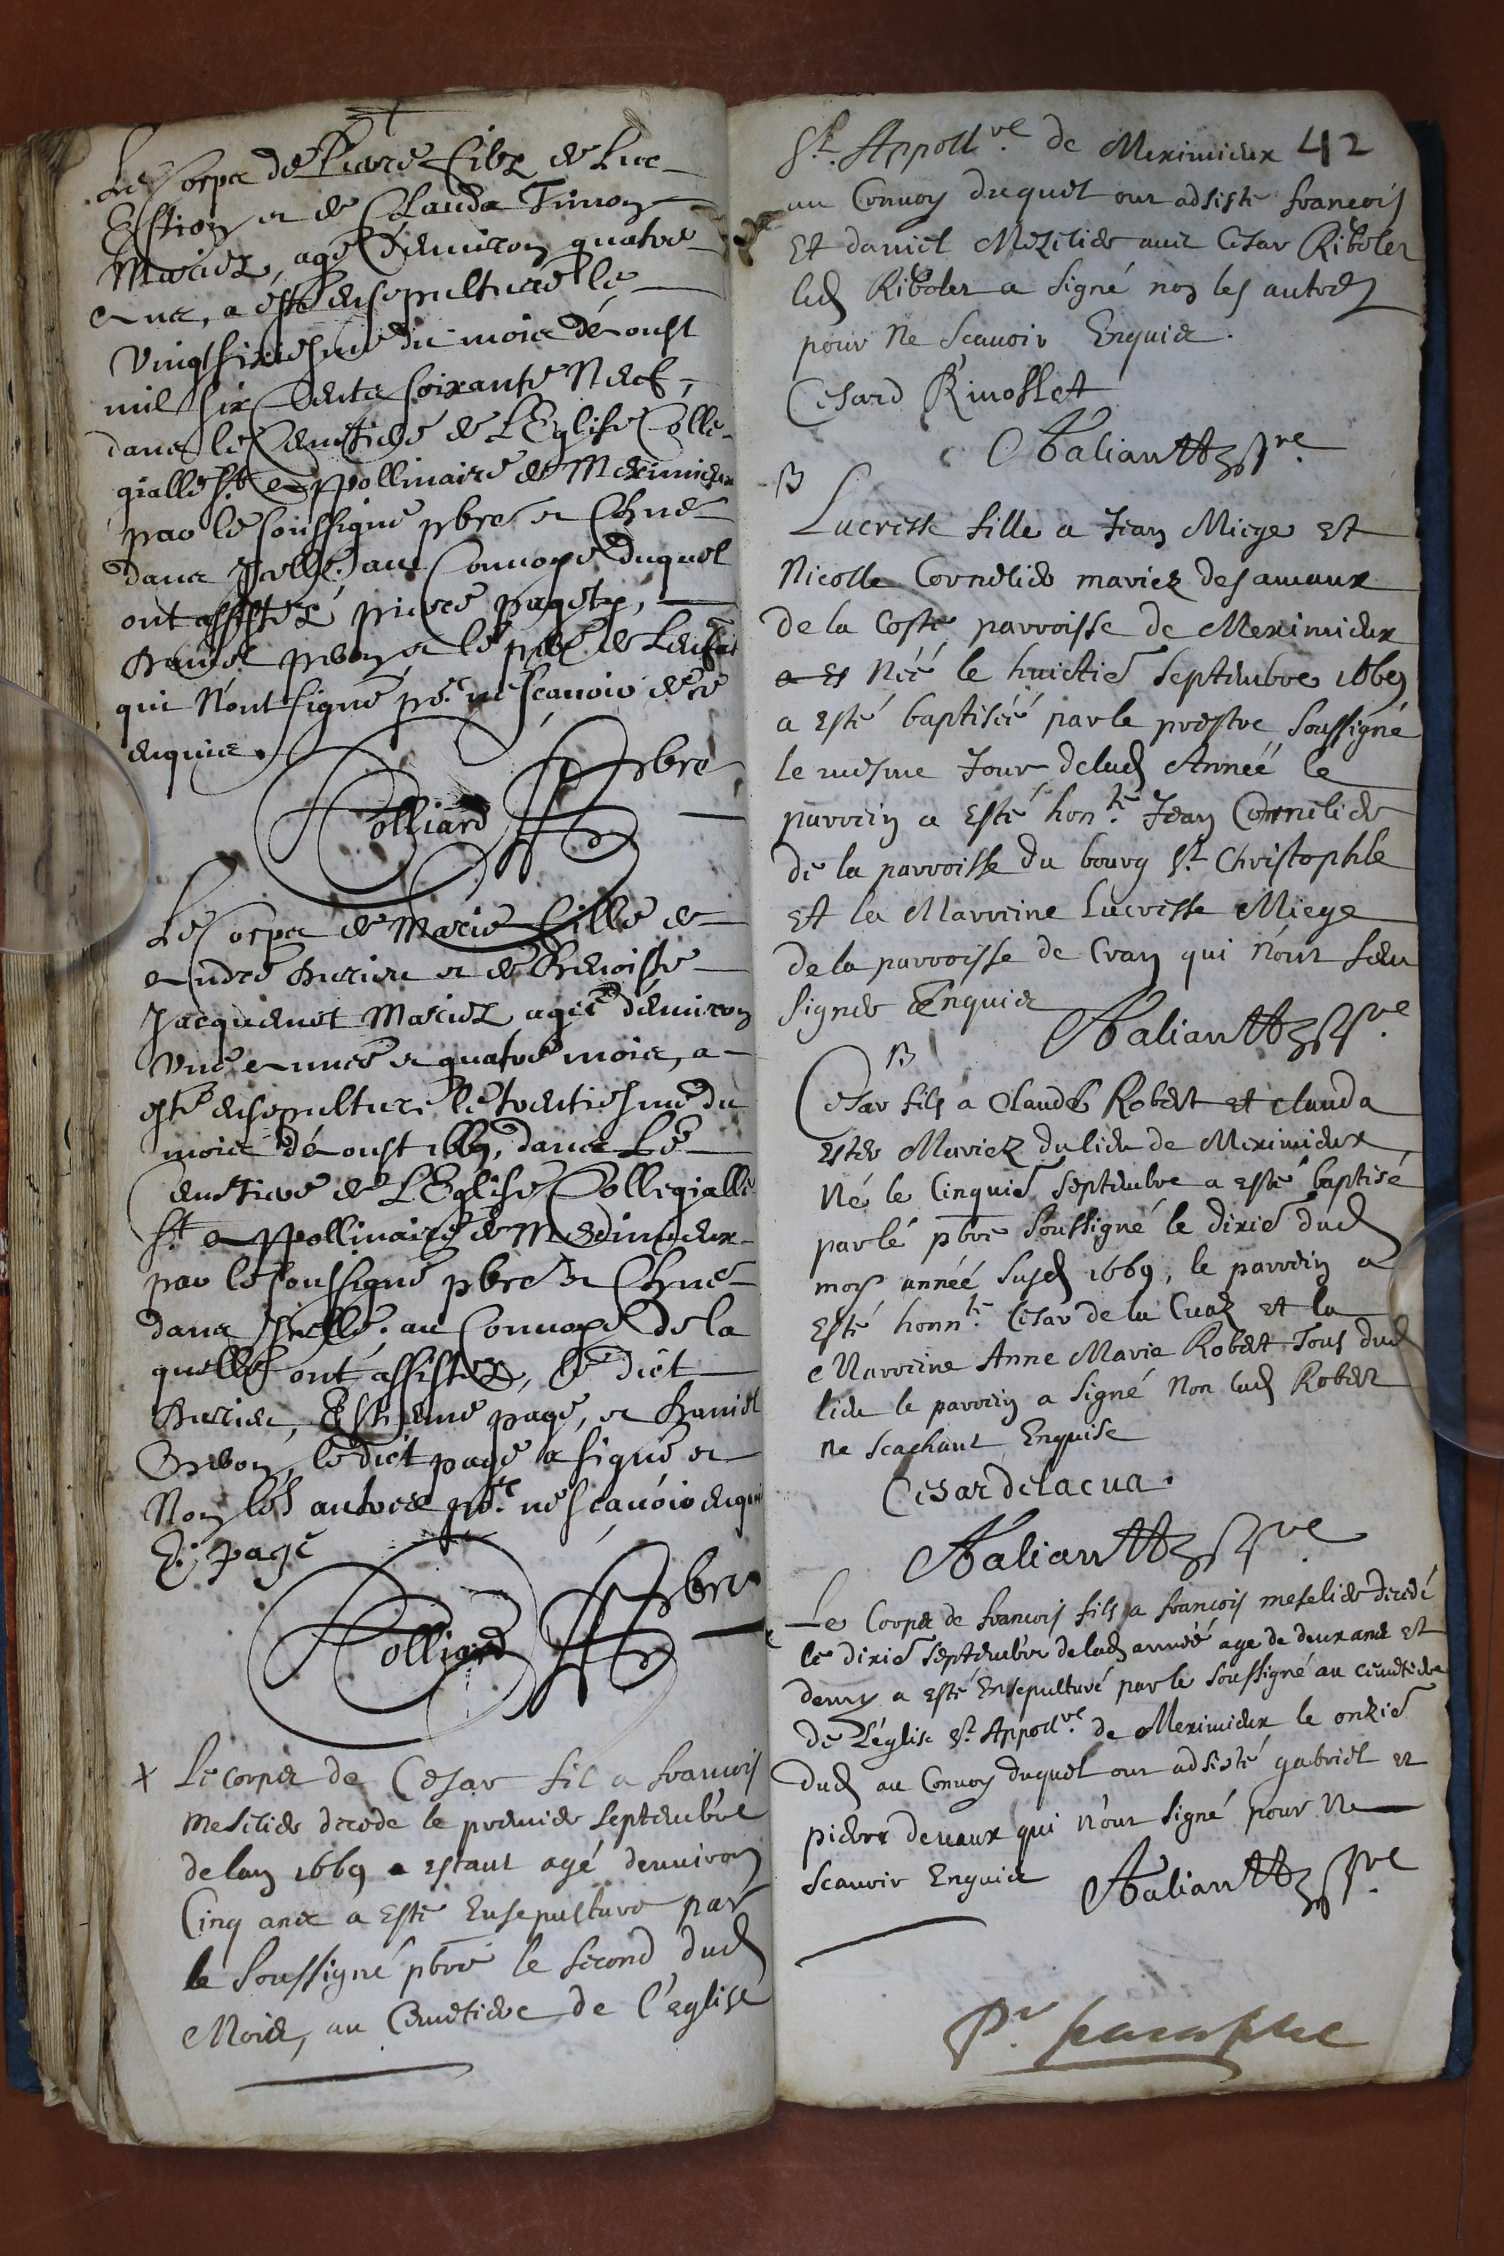 Le Corps de Pierre filz de Luc
Estion et de Clauda Timon
Mariez, agé d'environ quatre
ans, a esté ensepulturé le
vingtsixiesme du mois d'aoust
mil six cents soixante neuf,
dans le Cemetiere de L'Eglise Colle-
gialle St Appollinaire de Meximieux
par le soussigné pbre et Chne
dans Icelle. au Convoye duquel
ont assistez pierre paget,
et le pere de L'enfant
qui N'ont signé pr. ne scavoir de ce
enquis.
Colliard pbre
Le Corps de Marie fille de
Andre et de Benoiste
Jacquemet Mariez agée d'environ
une année et quatre mois, a
esté ensepulturé le trentiesme du
mois d'aoust 1669, dans Le
Cemetiere de L'Eglise Collegialle
St Appollinaire de Meximieux
par le soussigné pbre et Chne
dans Icelle. au Convoye de la
quelle ont assistez, le dict
Estienne page, et Daniel
le dict page a signé et
Non les autres pr. ne scavoir enquis
E. page
Colliard pbre
x Le corps de Cesar fil a francois
Mesilier decede le premier septembre
de lan 1669 estant agé denviron
Cinq ans a esté Ensepulture par
le Soussigné pbre le second dud
Mois, au Cemetiere de l'Eglise
St. Appollre de Meximieux 42
au Convoy duquel ont adsisté francois
Et daniel Mezilier avec Cesar Riboler
led Riboler a signé non les autres
pour Ne Scavoir Enquis.
Cesard Rivosllet
pre.
B
Lucresse fille a Jean Miege Et
Nicolle Cornelier mariez des amaux
de la Coste parroisse de Meximieux
Née le huictie Septembre 1669
a Esté baptisée par le prestre Soussigné
le mesme Jour delad Année le
parrein a Esté honte. Jean Cornelier
de la parroisse du bourg St. Christophle
Et la Marreine Lucresse Miege
de la parroisse de Cran qui N'ont sceu
signer Enquis
pre.
B
Cesar fils a Claude Robert et Clauda
Ester Mariez du lieu de Meximieux
Né le Cinquie Septembre a esté baptisé
par lé pbre Soussigné le dixie dud
mois année susd 1669, le parrein a
Esté honnte. Cesar de la Cuaz et la
Marreine Anne Marie Robert Tous dud
lieu le parrein a signé Non lad Robert
ne Scachant Enquise
Cesar delacua.
pre.
Le Corps de francois fils a francois meselier decedé
le dixie Septembre delad année age de deux ans Et
demy a esté Ensepulturé par le Soussigné au cemetiere
de L'église St. Appollre. de Meximieux le onzie
dud au Convoy duquel ont adsisté gabriel et
pierre devaux qui n'ont signé pour Ne
Scavoir Enquis pre.
Pr. paraphe